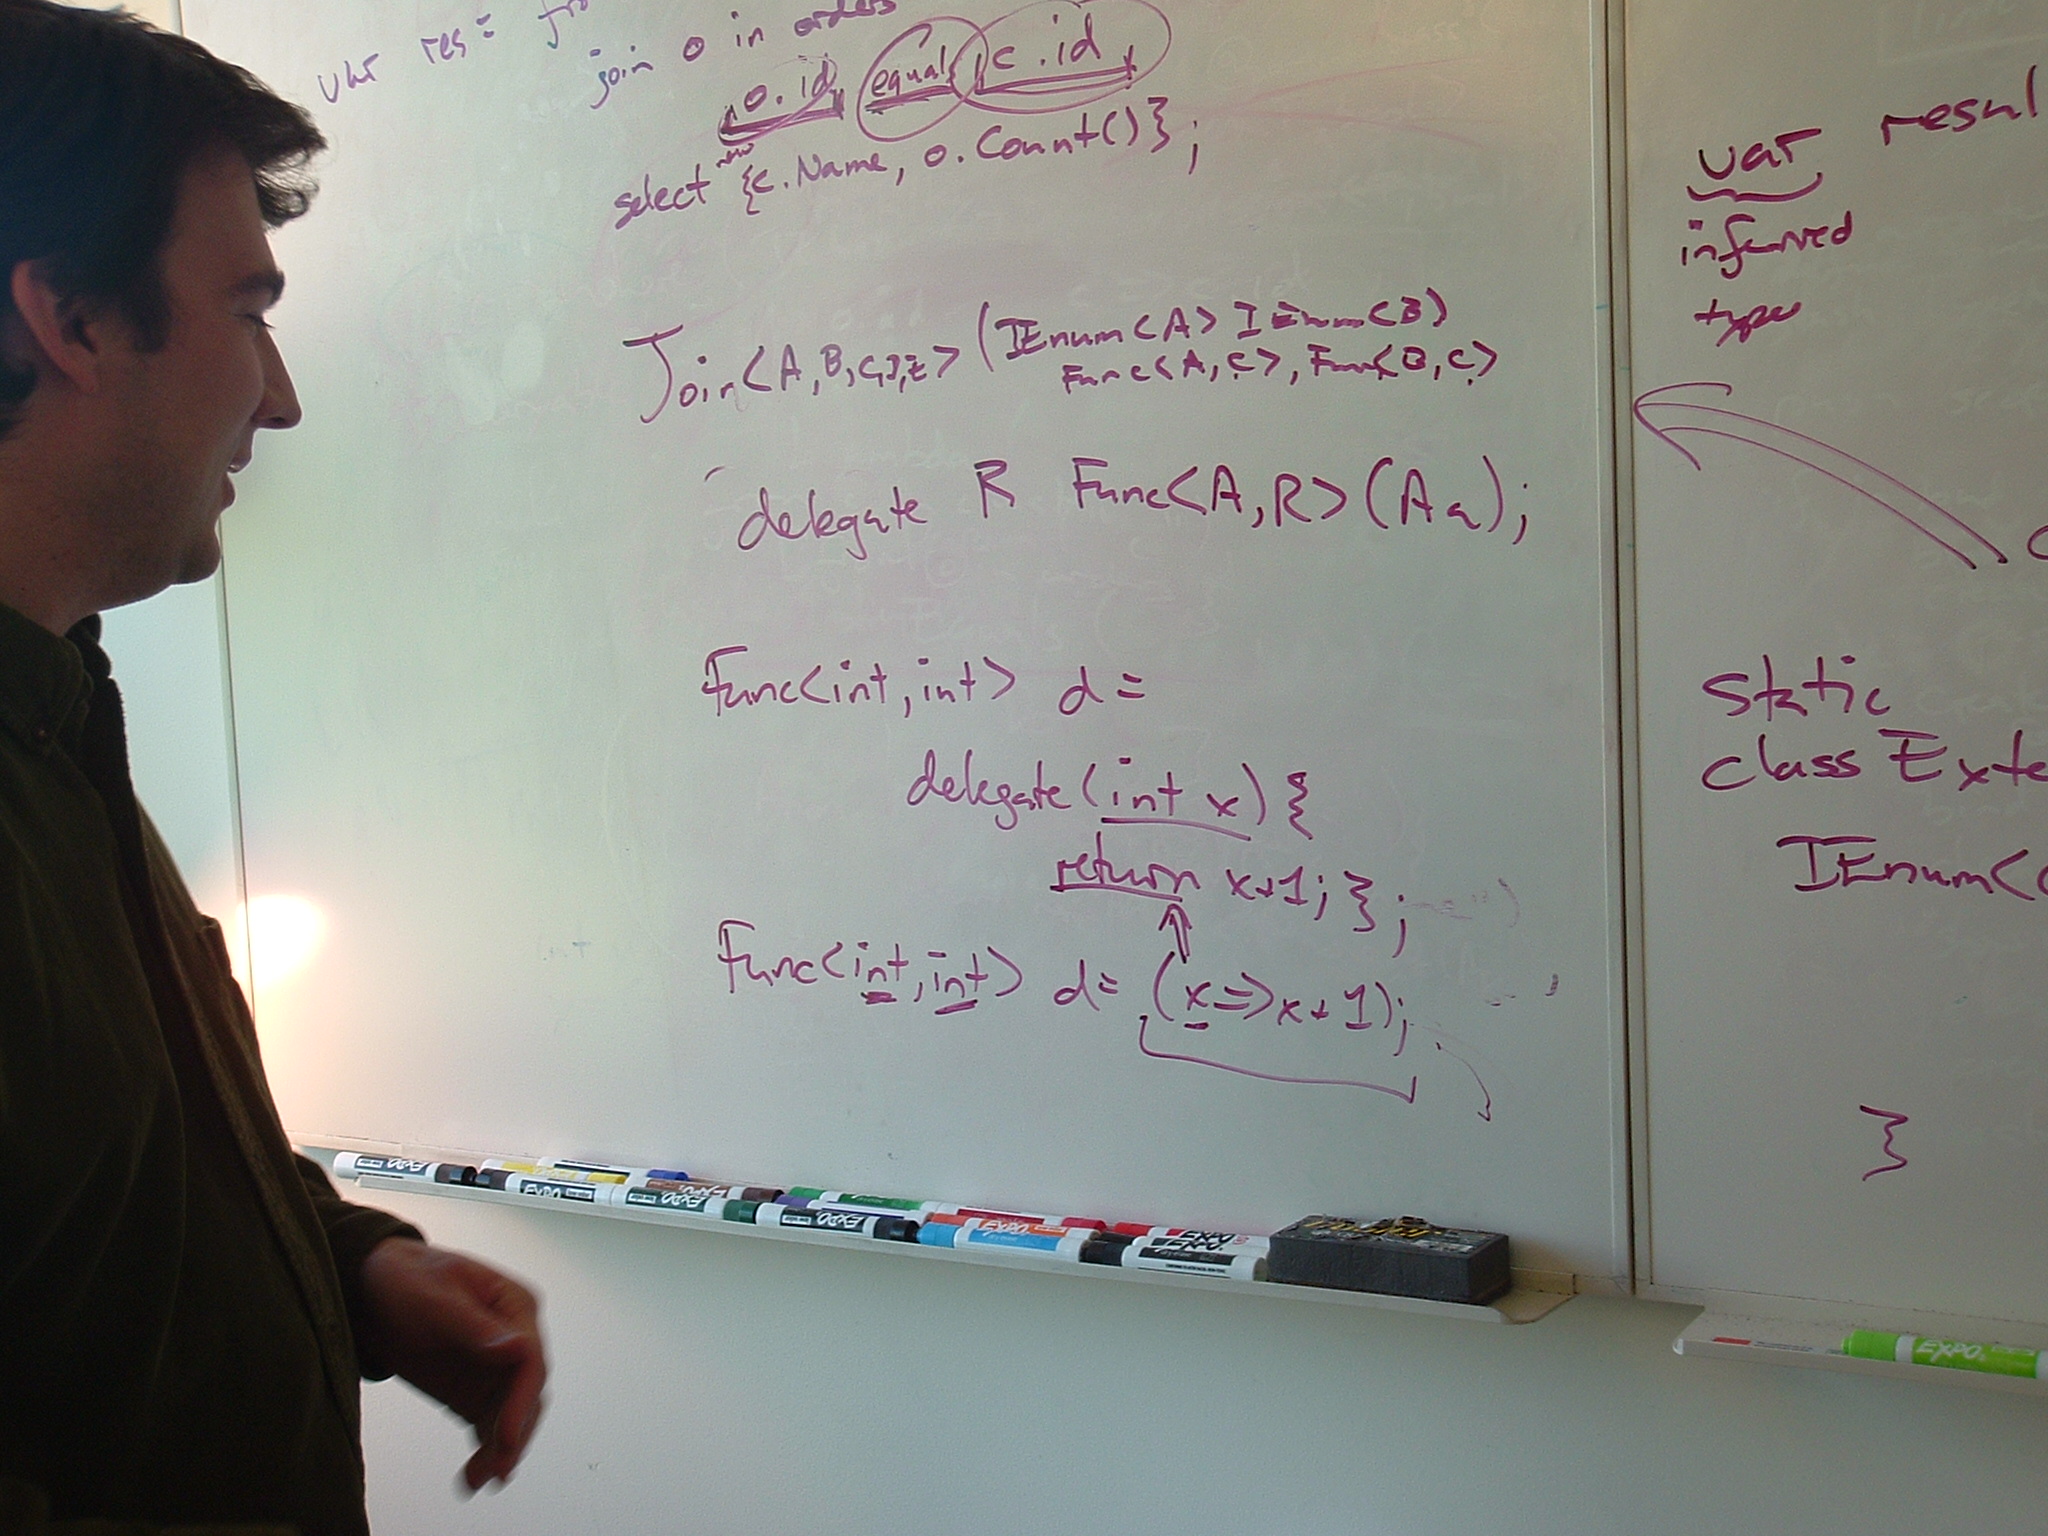 var res =
join o in orders
o.id equals c.id
select new {c.Name, o.Count()};
Join<A, B, C, D, E> (IEnum<A> IEnum<B>
Func<A, C>, Func<B, C>
delegate R Func<A, R> (A a);
Func<int, int> d =
delegate (int x) {
return x+1; };
Func<int, int> d = (x => x + 1);
var resul
inferred
type
static
class Exte
IEnum<
}
EXPO
EXPO
EXPO
EXPO
EXPO
EXPO
EXPO
EXPO
EXPO